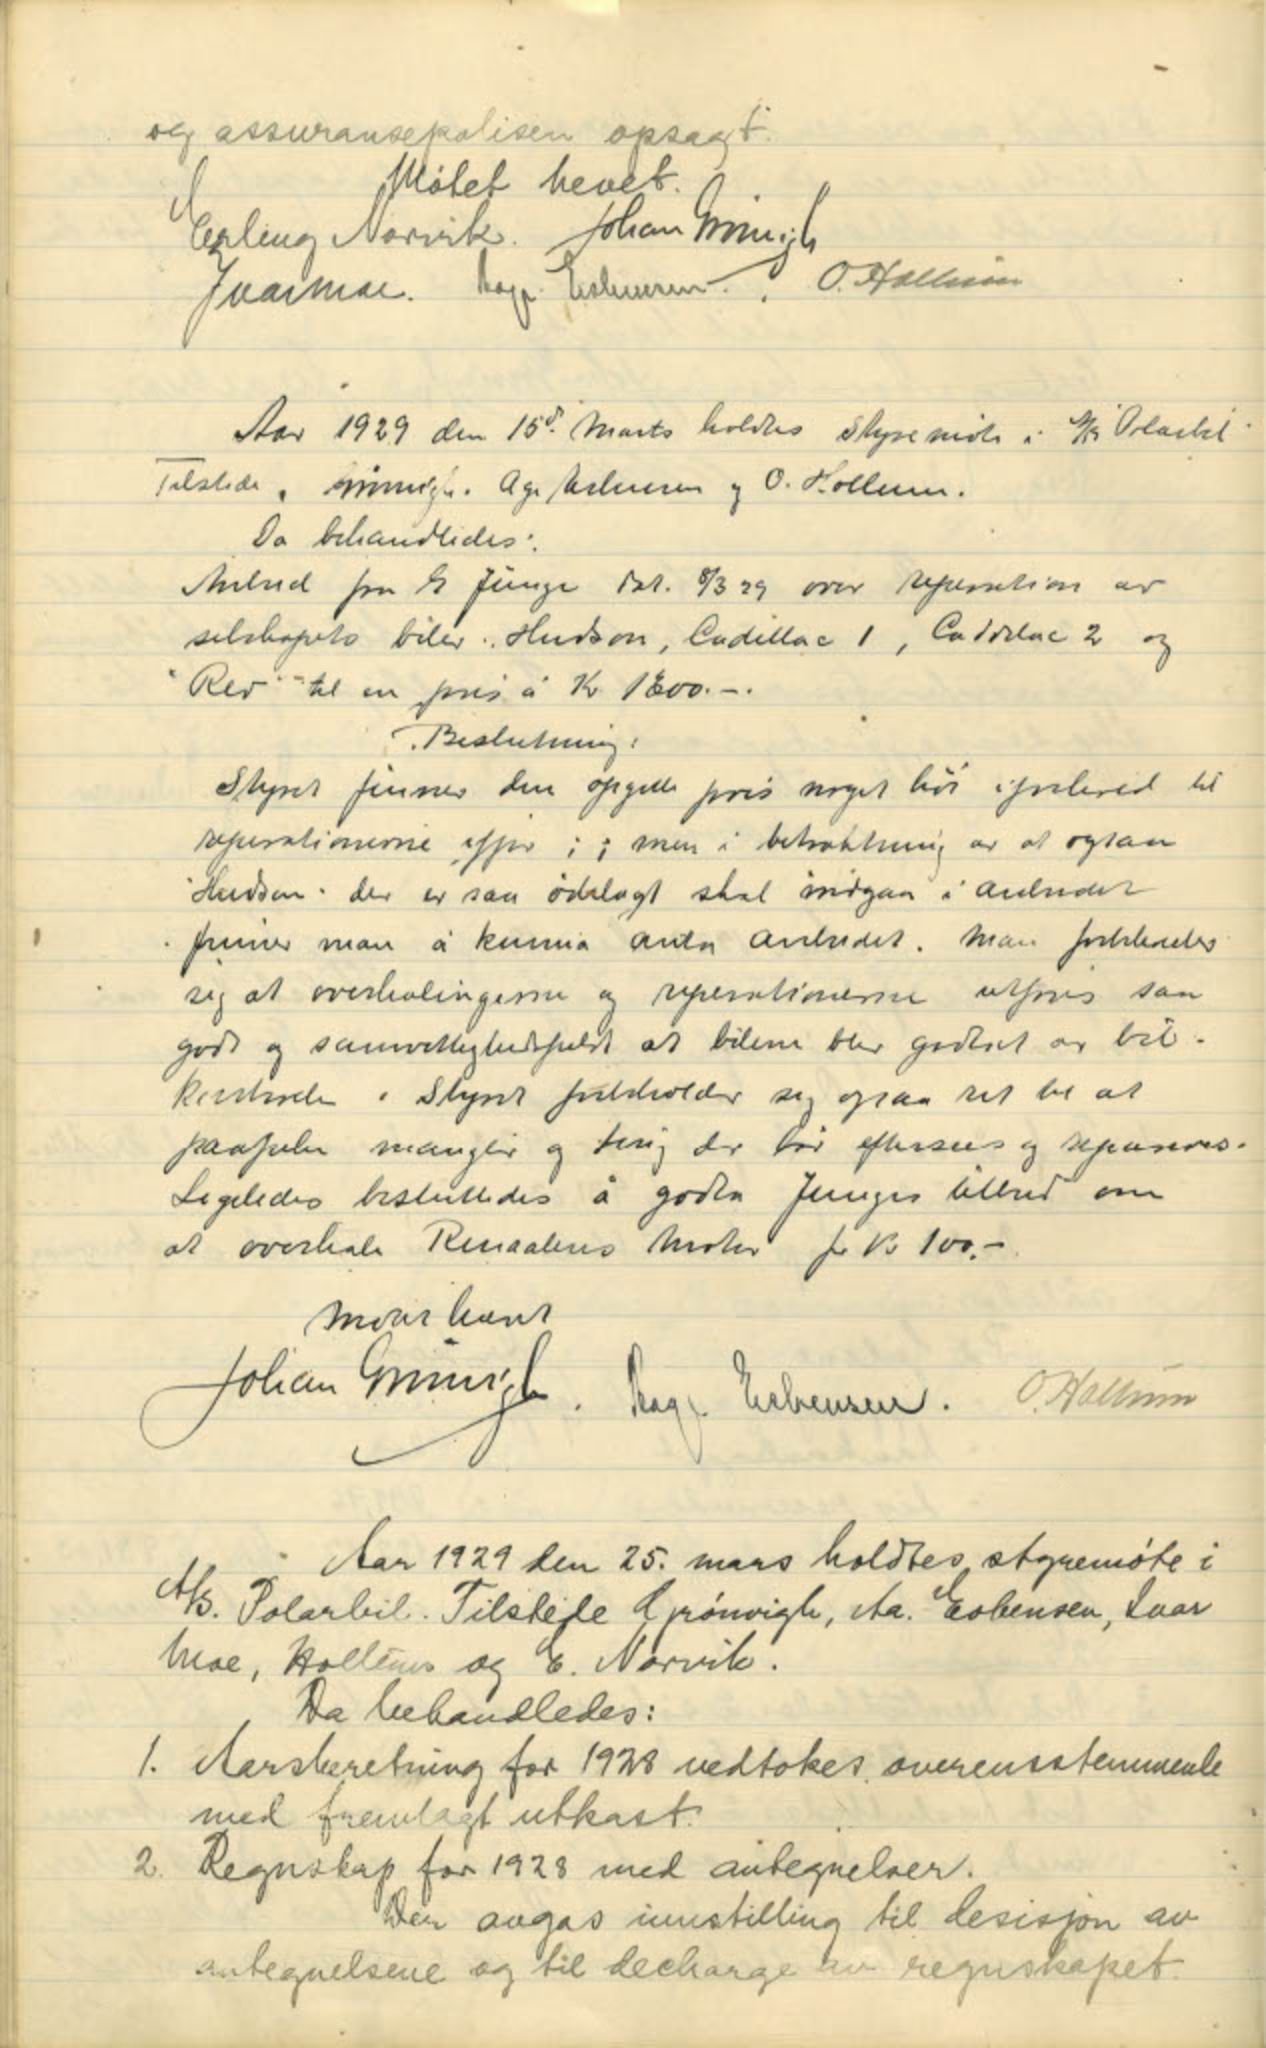 og assuransepolisen opsagt.
Møtet hevet.
Erling Norvik. Johan Grönvigh
Ivar Moe. Aage Esbensen. O. Hallum
Aar 1929 den 15d. Marts holdtes Styremöte i A/S "Polarbil"
Tilstede, Grönvigh. Aage Esbensen og O. Hollum.
Da behandledes:
Anbud fra G Junge dat. 8/3 29 over reperation av
selskapets biler. Hudson, Cadillac 1, Caddilac 2 og
"Reo" til en pris á Kr 1800.-.
Beslutning:
Styret finner den opgitte pris noget höi i forhold til
reperationerne ; men i betraktning av at ogsaa
"Hudson" der er saa ödelagt skal indgaa i anbudet
finner man å kunna anta anbudet. Man forbeholder
sig at overhalingerne og reperationerne utföres saa
godt og samvittighedsfuldt at bilene blir godtat av bil-
kontrolen. Styret forbeholder sig ogsaa ret til at
paapeke mangler og ting der bör eftersees og repareres.
Ligeledes besluttedes å godta Junges tilbud om
at overhale Renaulens Motor for Kr 100.-
Möte hævet
Johan Grönvigh. Aage Esbensen. O. Hallum
Aar 1929 den 25. mars holdtes styremøte i
A/S. Polarbil. Tilstede Grönvigh, Aa. Esbensen, Ivar
Moe, Hollum og E. Norvik.
Da behandledes:
1. Aarsberetning for 1928 vedtokes overensstemmende
med fremlagt utkast.
2. Regnskap for 1928 med antegnelser.
Der avgas innstilling til desisjon av
antegnelsene og til decharge av regnskapet.